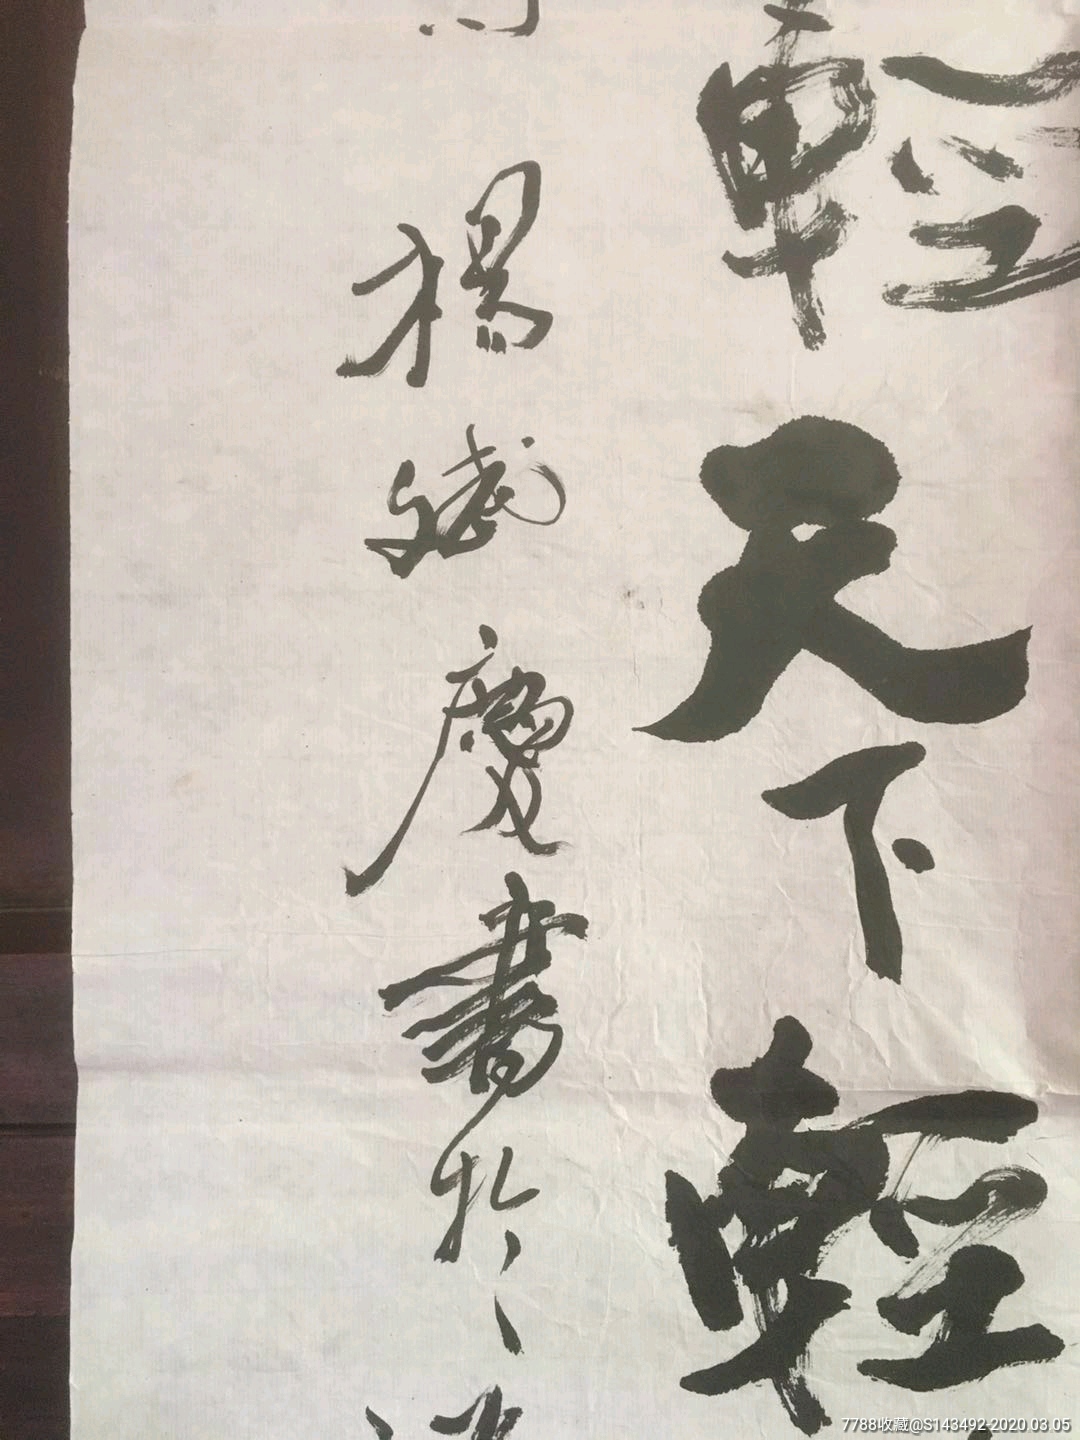 輕天下輕
楊斌慶書於
7788收藏@S143492-2020.03.05